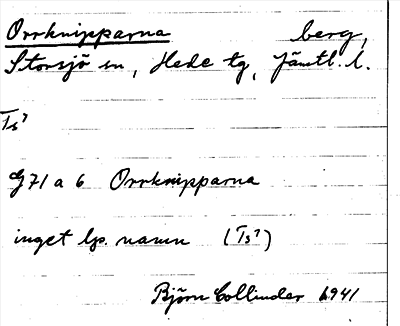 Orrknipparna berg,
Storsjö sn, Hede tg, Jämtl. l.
Ts?
G 71 a 6 Orrknipparna
inget lp. namn (Ts?)
Björn Collinder 1941